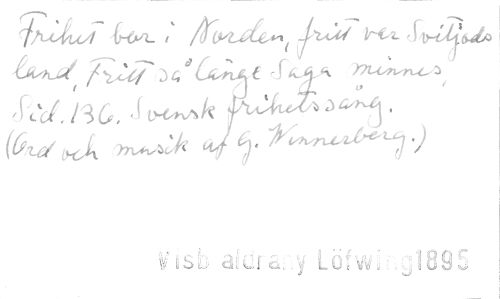 Frihet bor i Norden, fritt var Svitjods
land, Fritt så länge Saga minnes,
Sid. 136. Svensk frihetssång.
(Ord och musik af G. Wennerberg.)
Visb aldrany Löfwing1895